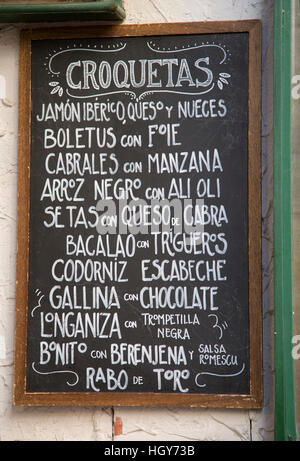 CROQUETAS
JAMÓN IBÉRICO, QUESO Y NUECES
BOLETUS CON FOIE
CABRALES CON MANZANA
ARROZ NEGRO CON ALI OLI
SETAS CON QUESO DE CABRA
BACALAO CON TRIGUEROS
CODORNIZ ESCABECHE
GALLINA CON CHOCOLATE
LONGANIZA CON TROMPETILLA NEGRA
BONITO CON BERENJENA Y SALSA ROMESCU
RABO DE TORO
alamy stock photo
HGY73B
www.alamy.com